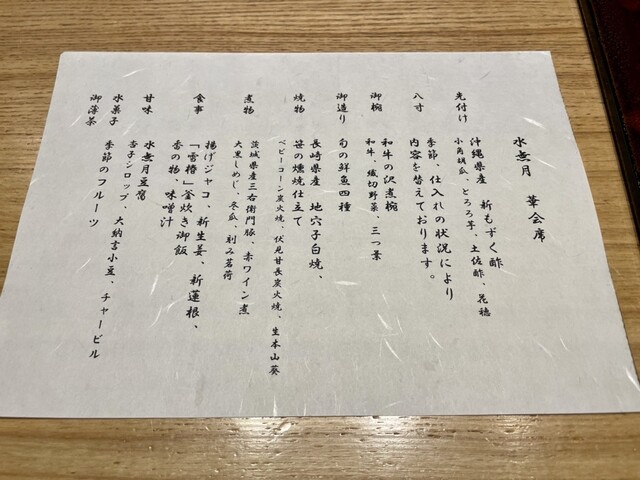 水無月　華会席
先付け
沖縄県産　新もずく酢
小角胡瓜、とろろ芋、土佐酢、花穂
八寸
季節、仕入れの状況により
内容を替えております。
御椀
和牛の沢煮椀
和牛、繊切野菜、三つ葉
御造り
旬の鮮魚四種
焼物
長崎県産　地穴子白焼、
笹の燻焼仕立て
ベビーコーン炭火焼、伏見甘長炭火焼、生本山葵
煮物
茨城県産三右衛門豚、赤ワイン煮
大黒しめじ、冬瓜、刻み茗荷
食事
揚げジャコ、新生姜、新蓮根、
「雪椿」釜炊き御飯
香の物、味噌汁
甘味
水無月豆腐
杏子シロップ、大納言小豆、チャービル
水菓子
季節のフルーツ
御薄茶